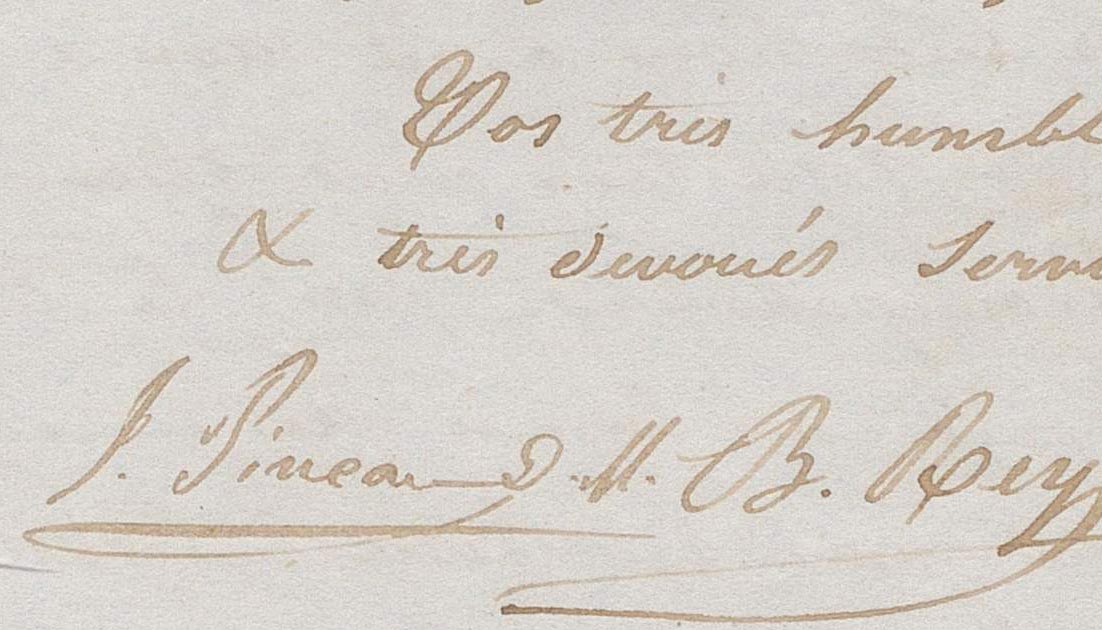 Vos très humbl
& très devoués Serv
J. Pineau D. M. B. Rey